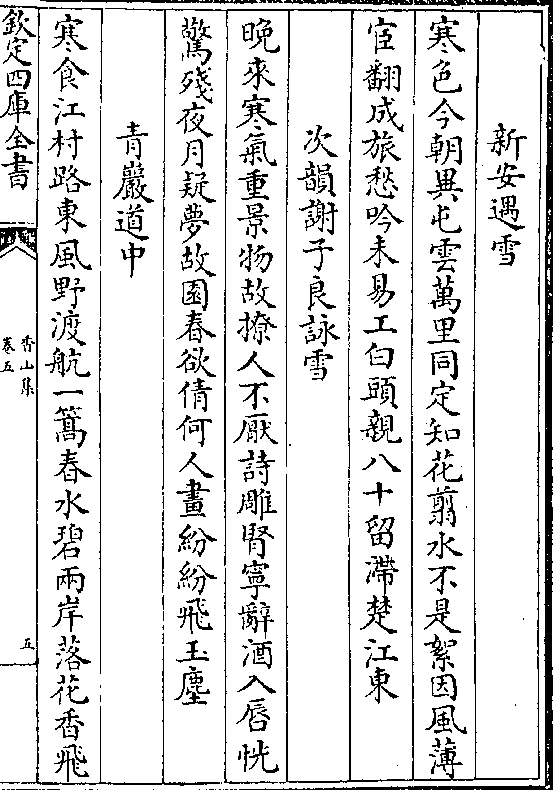 新安遇雪
寒色今朝異屯雲萬里同定知花翦水不是絮因風薄
宦翻成旅愁吟未易工白頭親八十留滯楚江東
次韻謝子良詠雪
晩來寒氣重景物故撩人不厭詩雕腎寧辭酒入唇恍
驚殘夜月疑夢故園春欲倩何人畫紛紛飛玉塵
青巖道中
寒食江村路東風野渡航一篙春水碧兩岸落花香飛
欽定四庫全書
香山集
卷五
五